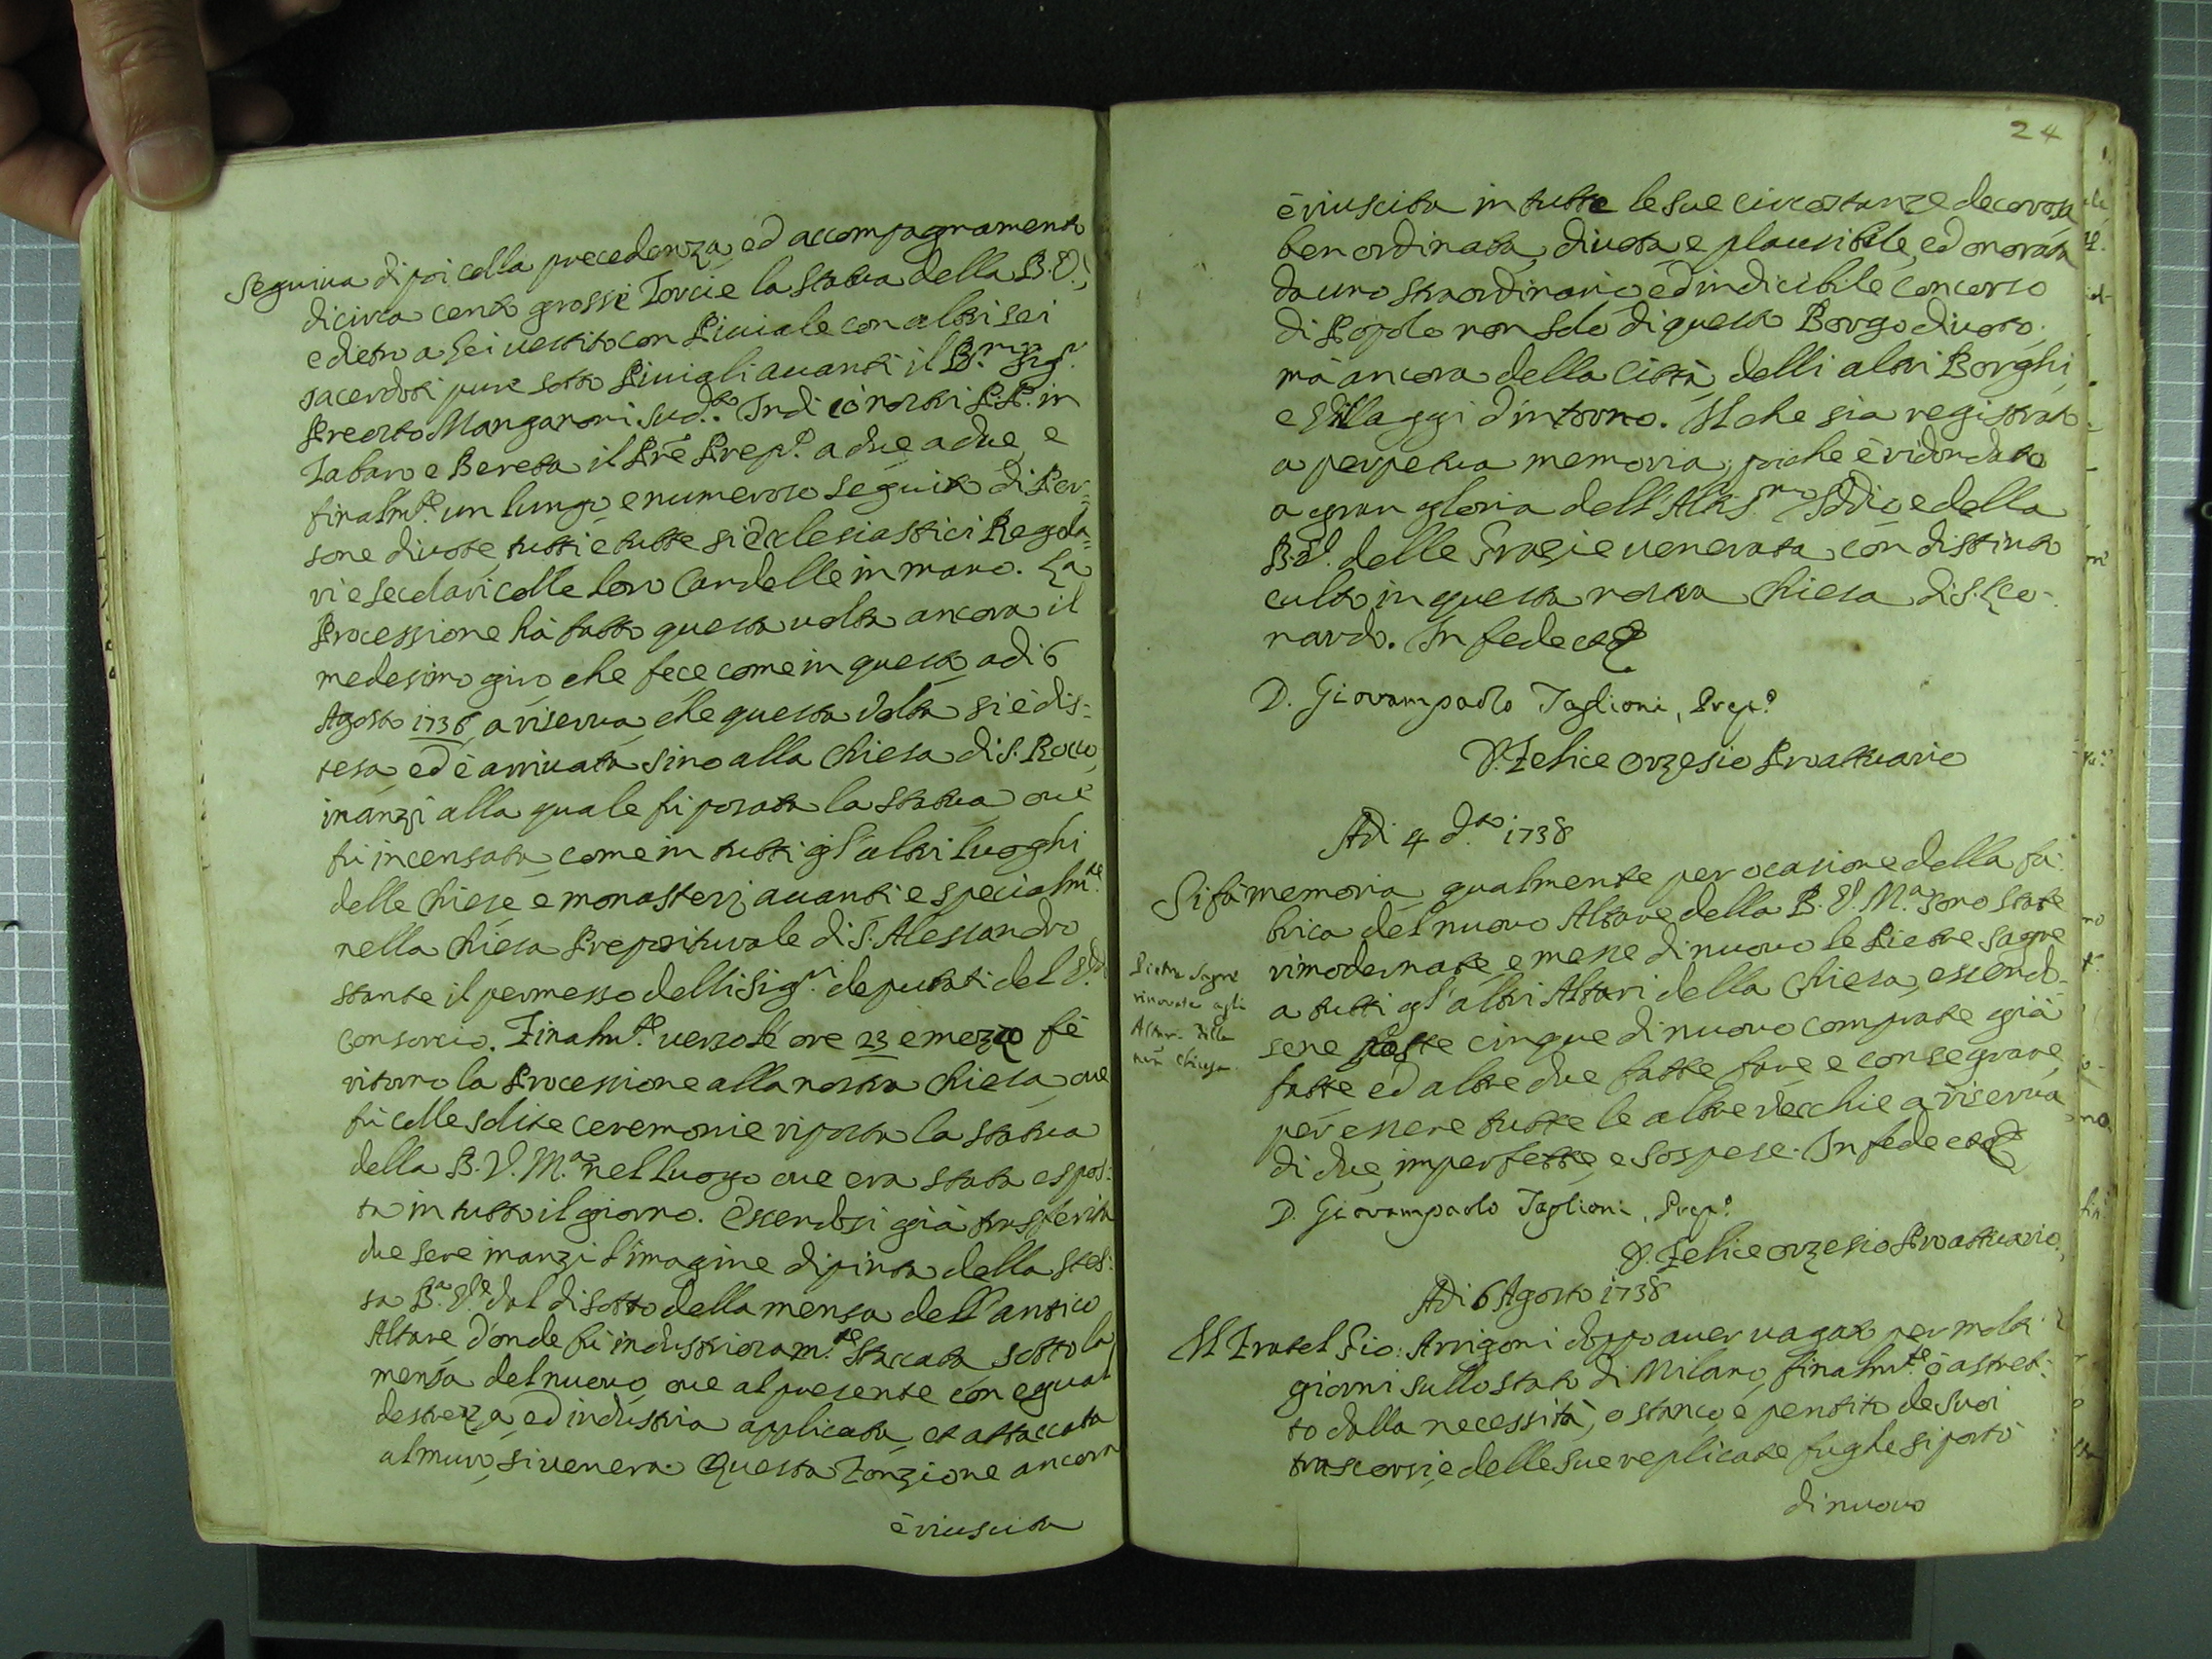 Seguiva dipoi colla precedenza, ed accompagnamento
di circa cento grossi Torcie la Statua della B. V.,
e dietro a lei vestito con Piviale con altri sei
sacerdoti pure sotto Piviali avanti il R.mo Sig.r
Preosto Manganoni sud.to Indi i nostri PP. in
Tabaro e Bereta il Prê Prep.o a due a due, e
finalm.te un lungo, e numeroso seguito di Per=
sone divote, tutti e tutte si Ecclesiastici Regola=
ri e secolari colle loro Candelle in mano. La
Processione hà fatto questa volta ancora il
medesimo giro che fece come in questo adi 6
Agosto 1736, a riserva, che questa volta si è dis=
tesa ed è arrivata sino alla Chiesa di S. Rocco,
inanzi alla quale fù posata la statua ove
fù incensata come in tutti gl'altri luoghi
delle Chiese e monasterj avanti e specialm.te
nella Chiesa Prepositurale di S. Alessandro
stante il permesso delli Sig.ri deputati del V.do
Consorcio. Finalm.te verso le ore 23 e mezo fè
ritorno la Processione alla nostra Chiesa, ove
fù colle solite ceremonie riposta la statua
della B. V. M.a nel luogo ove era stata espos=
ta in tutto il giorno. Essendosi già trasferita
due sere inanzi l'imagine dipinta della stes=
sa B.a V.e dal di sotto della mensa dell'antico
Altare d'onde fù industriosam.te staccata sotto la
mensa del nuovo, ove al presente con egual
destrezza, ed industria applicata, et attaccata
al muro, si venera. Questa Fonzione ancora
è riuscita
24
è riuscita in tutte le sue circostanze decorosa
ben ordinata, divota, e plausibile, ed onorata
da uno straordinario ed indicibile concorso
di Popolo non solo di questo Borgo divoto,
mà ancora della Città, delli altri Borghi,
e Villaggi d'intorno. Il che sia registrato
a perpetua memoria, poiche è ridondato
a gran gloria dell'Altis.mo Iddio e della
B. V. delle Grazie venerata con distinto
culto in questa nostra Chiesa di S. Leo-
nardo. In fede etc
D. Giovampaolo Taglioni, Prep.o
D. Felice Orzesio Proattuario
Adi 4 d.to 1738
Si fà memoria, qualmente per ocasione della fa=
brica del nuovo Altare della B. V. M.a sono state
rimodernate, e messe di nuovo le Pietre sagre
a tutti gl'altri Altari della Chiesa, essendo-
sene poste cinque di nuovo comprate già
fatte ed altre due fatte fare, e consegrare
per essere tutte le altre vecchie a riserva
di due, imperfette, e sospese. In fede etc
Pietre Sagre
rinovate agli
Altari della
nrã Chiesa.
D. Giovampaolo Taglioni, Prep.o
D. Felice Orzesio Proattuario
Adi 6 Agosto 1738
Il Fratel Gio: Arrigoni doppo aver vagato per molti
giorni sullo stato di Milano, finalm.te ò astret=
to dalla necessità, o stanco, e pentito de suoi
trascorsi, e delle sue replicate fughe si portò
di nuovo